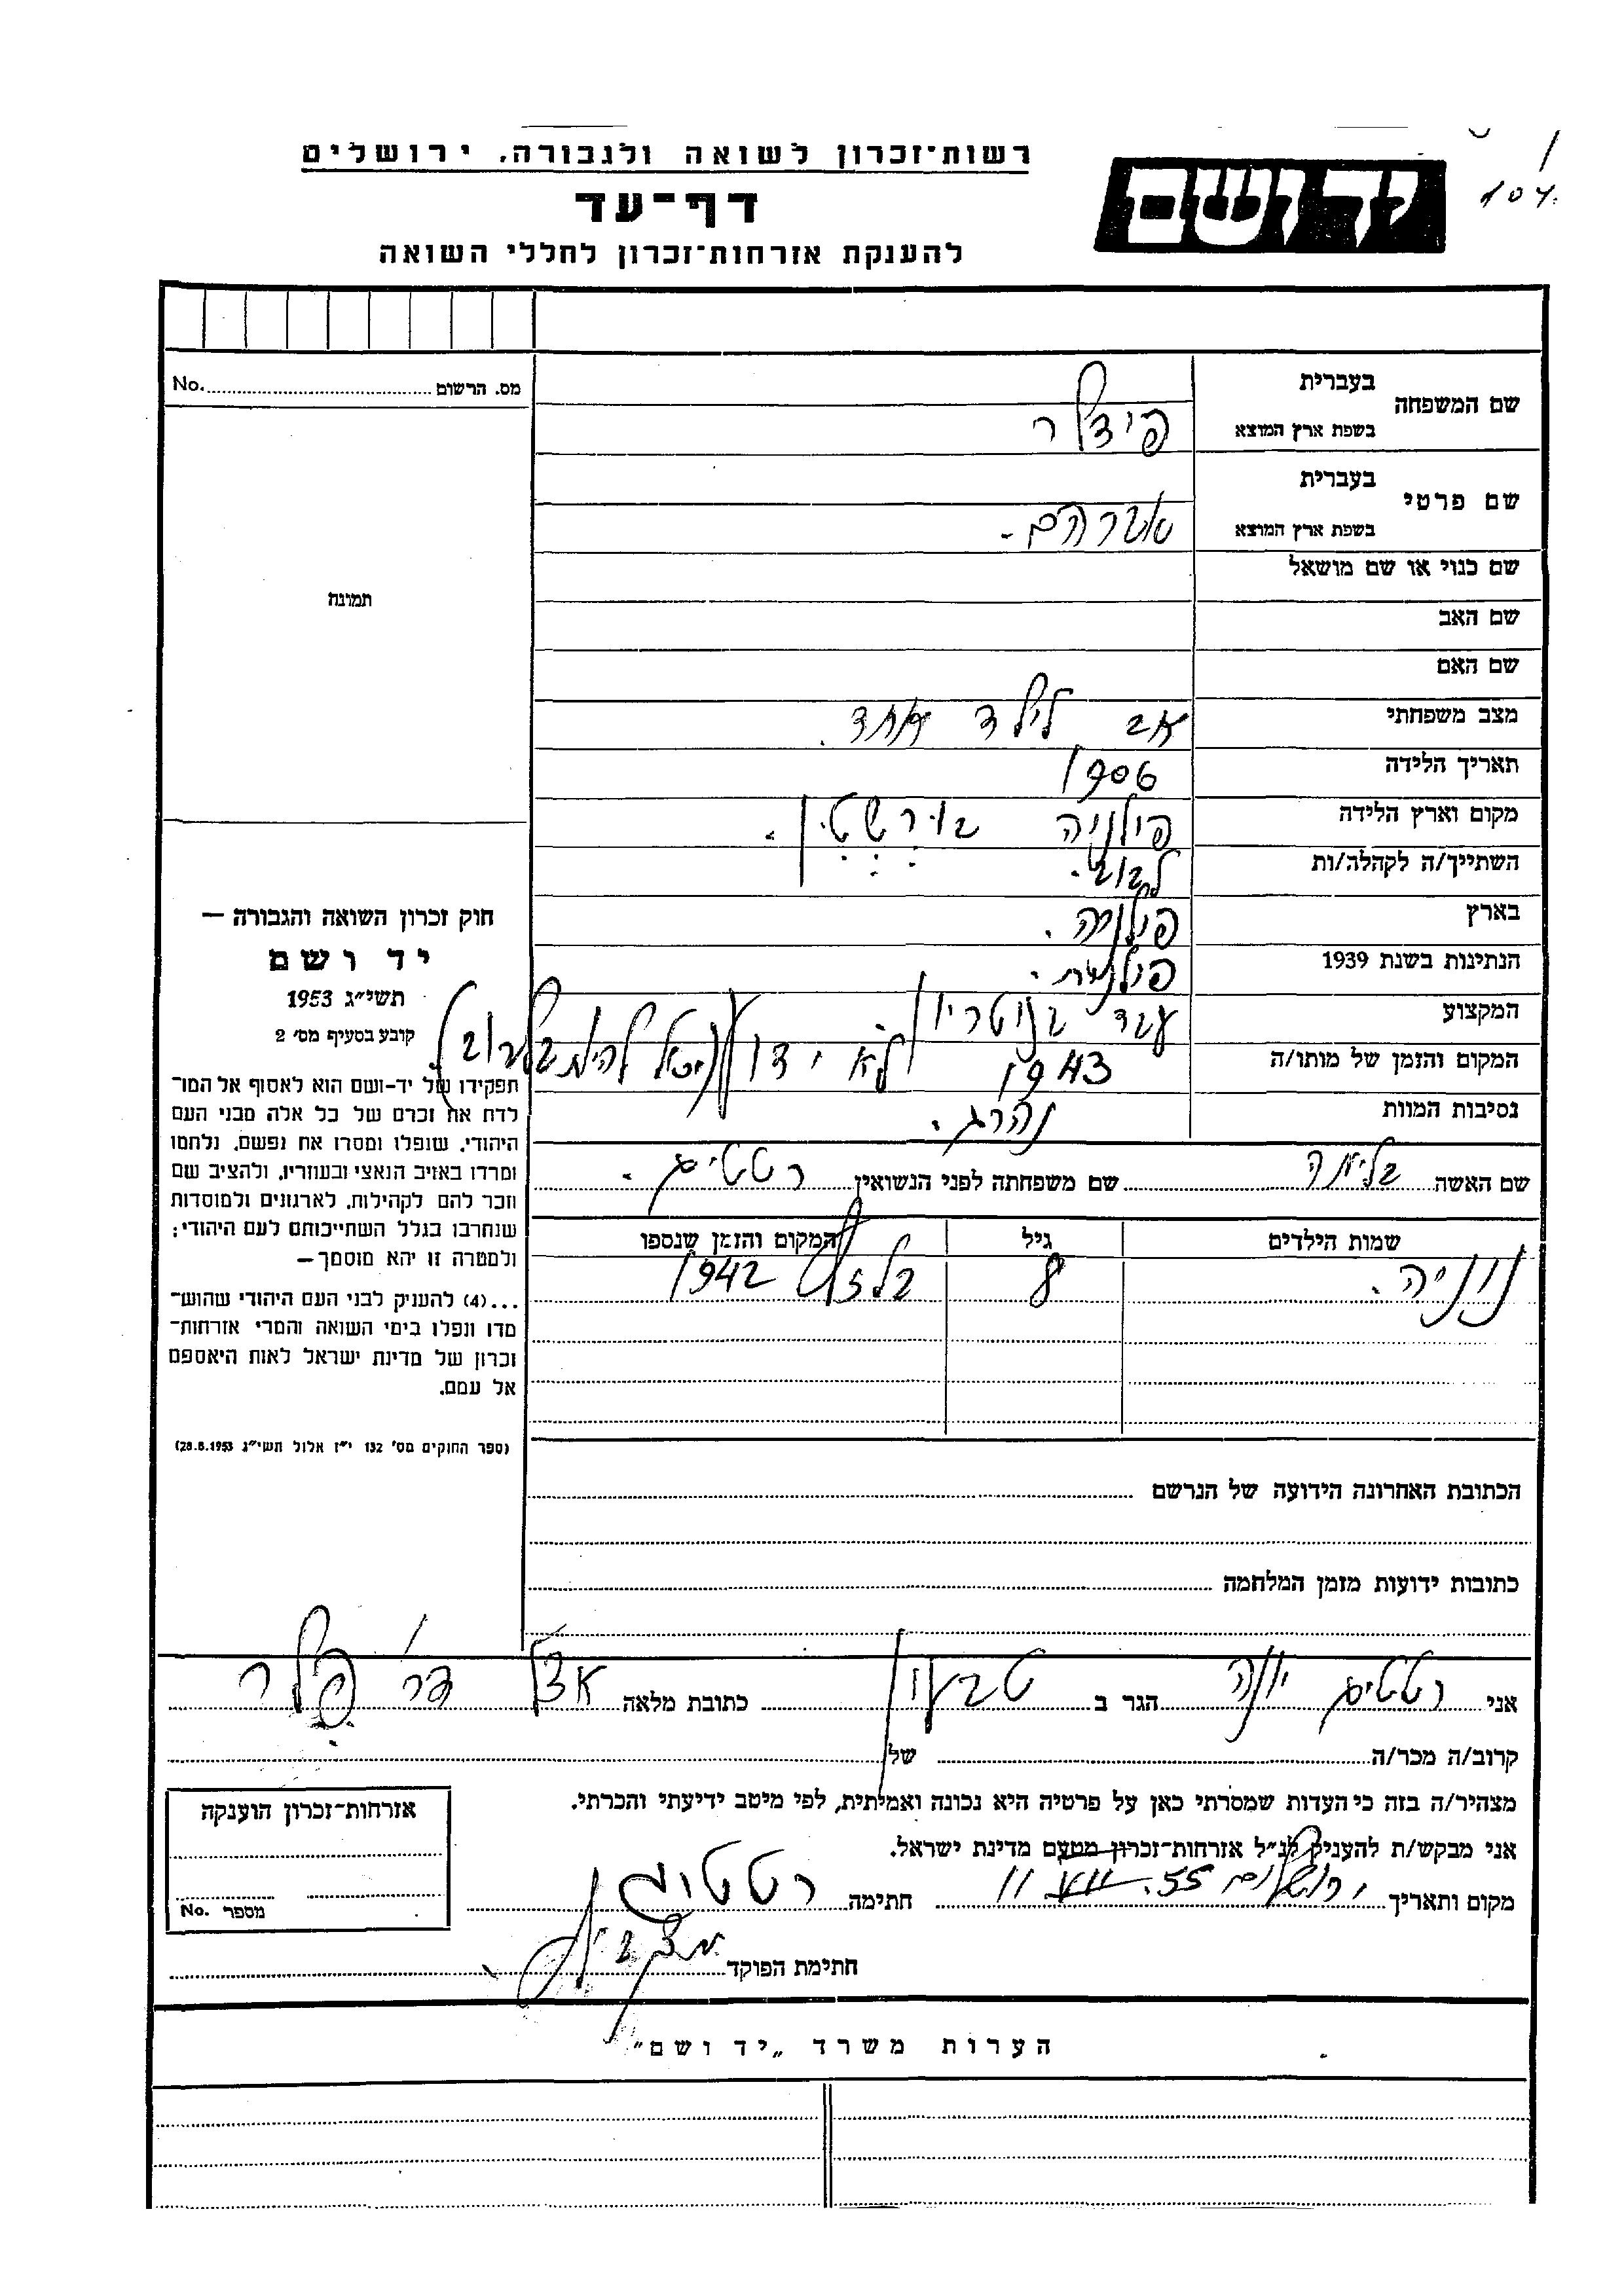 רשות־זכרון לשואה ולגבורה, ירושלים
דף־עד
להענקת אזרחות־זכרון לחללי השואה
יד ושם
מס. הרשום No.
שם המשפחה
בעברית
בשפת ארץ המוצא פידלר
שם פרטי
בעברית
בשפת ארץ המוצא אברהם.
שם כנוי או שם מושאל
שם האב
שם האם
מצב משפחתי אב לילד אחד.
תאריך הלידה 1906
מקום וארץ הלידה פולניה בורשטין.
השתייך/ה לקהלה/ות לבוב.
בארץ פולניה.
הנתינות בשנת 1939 פולנית.
המקצוע עבד בנוטריון
המקום והזמן של מותו/ה 1943 לא ידוע (יכול להיות בלבוב).
נסיבות המוות נהרג.
שם האשה בלימה שם משפחתה לפני הנשואין רטטיג.
שמות הילדים גיל המקום והזמן שנספו
נוניה. 8 בלזץ 1942
תמונה
חוק זכרון השואה והגבורה —
יד ושם
תשי״ג 1953
קובע בסעיף מס׳ 2
תפקידו של יד-ושם הוא לאסוף אל המו־
לדת את זכרם של כל אלה מבני העם
היהודי, שנפלו ומסרו את נפשם, נלחמו
ומרדו באויב הנאצי ובעוזריו, ולהציב שם
וזכר להם לקהילות, לארגונים ולמוסדות
שנחרבו בגלל השתייכותם לעם היהודי;
ולמטרה זו יהא מוסמך—
...(4) להעניק לבני העם היהודי שהוש־
מדו ונפלו בימי השואה והמרי אזרחות־
זכרון של מדינת ישראל לאות היאספם
אל עמם.
(ספר החוקים מס׳ 132 י״ז אלול תשי״ג 28.8.1953)
הכתובת האחרונה הידועה של הנרשם
כתובות ידועות מזמן המלחמה
אני רטטיג יונה הגר ב טבעון כתובת מלאה אצל דר׳ פלר
קרוב/ה מכר/ה של
מצהיר/ה בזה כי העדות שמסרתי כאן על פרטיה היא נכונה ואמיתית, לפי מיטב ידיעתי והכרתי.
אני מבקש/ת להעניק לנ״ל אזרחות־זכרון מטעם מדינת ישראל.
מקום ותאריך ירושלים 11 VII. 55 חתימה רטטיג
חתימת הפוקד
אזרחות־זכרון הוענקה
מספר No.
הערות משרד „יד ושם״